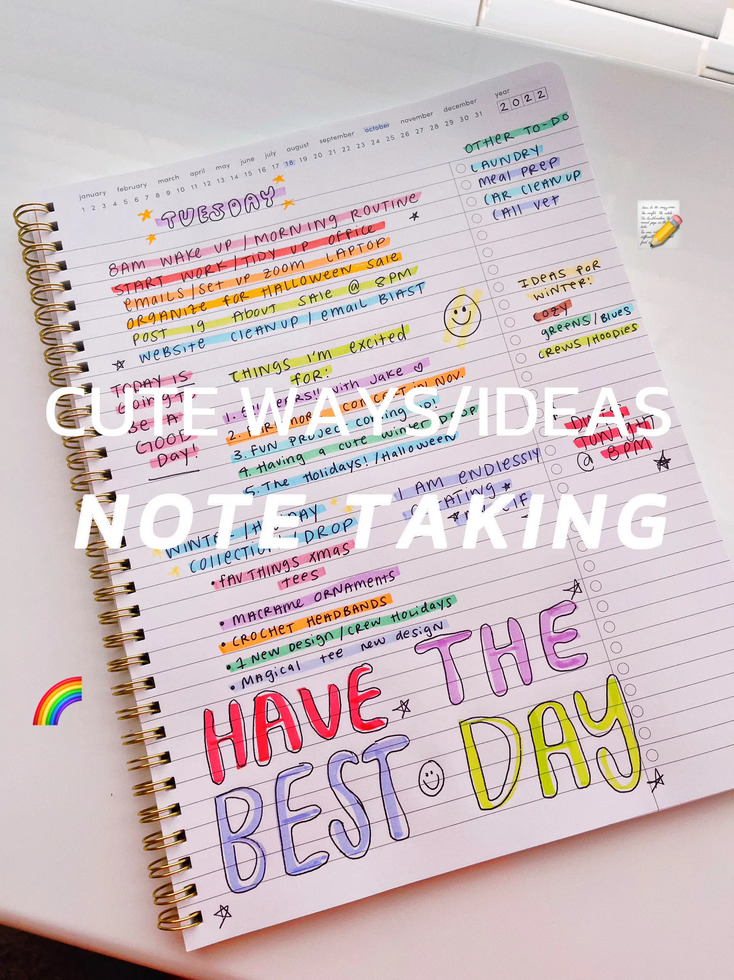 january february march april may june july august september october november december year
1 2 3 4 5 6 7 8 9 10 11 12 13 14 15 16 17 18 19 20 21 22 23 24 25 26 27 28 29 30 31 2022
TUESDAY
8AM WAKE UP / MORNING ROUTINE
START WORK / TIDY UP OFFICE
EMAILS / SET UP ZOOM LAPTOP
ORGANIZE FOR HALLOWEEN SALE
POST IG ABOUT SALE @ 8PM
WEBSITE CLEAN UP / EMAIL BLAST
OTHER TO-DO
LAUNDRY
MEAL PREP
CAR CLEAN UP
CALL VET
IDEAS FOR
WINTER:
COZY
GREENS / BLUES
CREWS / HOODIES
TODAY IS
GOING TO
BE A
GOOD
DAY!
THINGS I'M EXCITED
FOR:
1. with Jake
2. IN NOV.
3. FUN PROJECT COMING UP!
4. Having a cute winter DROP
5. The Holidays! / Halloween
CUTE WAYS/IDEAS
DINNER
TONIGHT
@ 8PM
I AM ENDLESSLY
CREATING
NOTE TAKING
WINTER / HOLIDAY
COLLECTION / DROP
• FAV THINGS XMAS
TEES
• MACRAME ORNAMENTS
• CROCHET HEADBANDS
• 1 New Design / Crew Holidays
• Magical tee new design
HAVE THE
BEST DAY